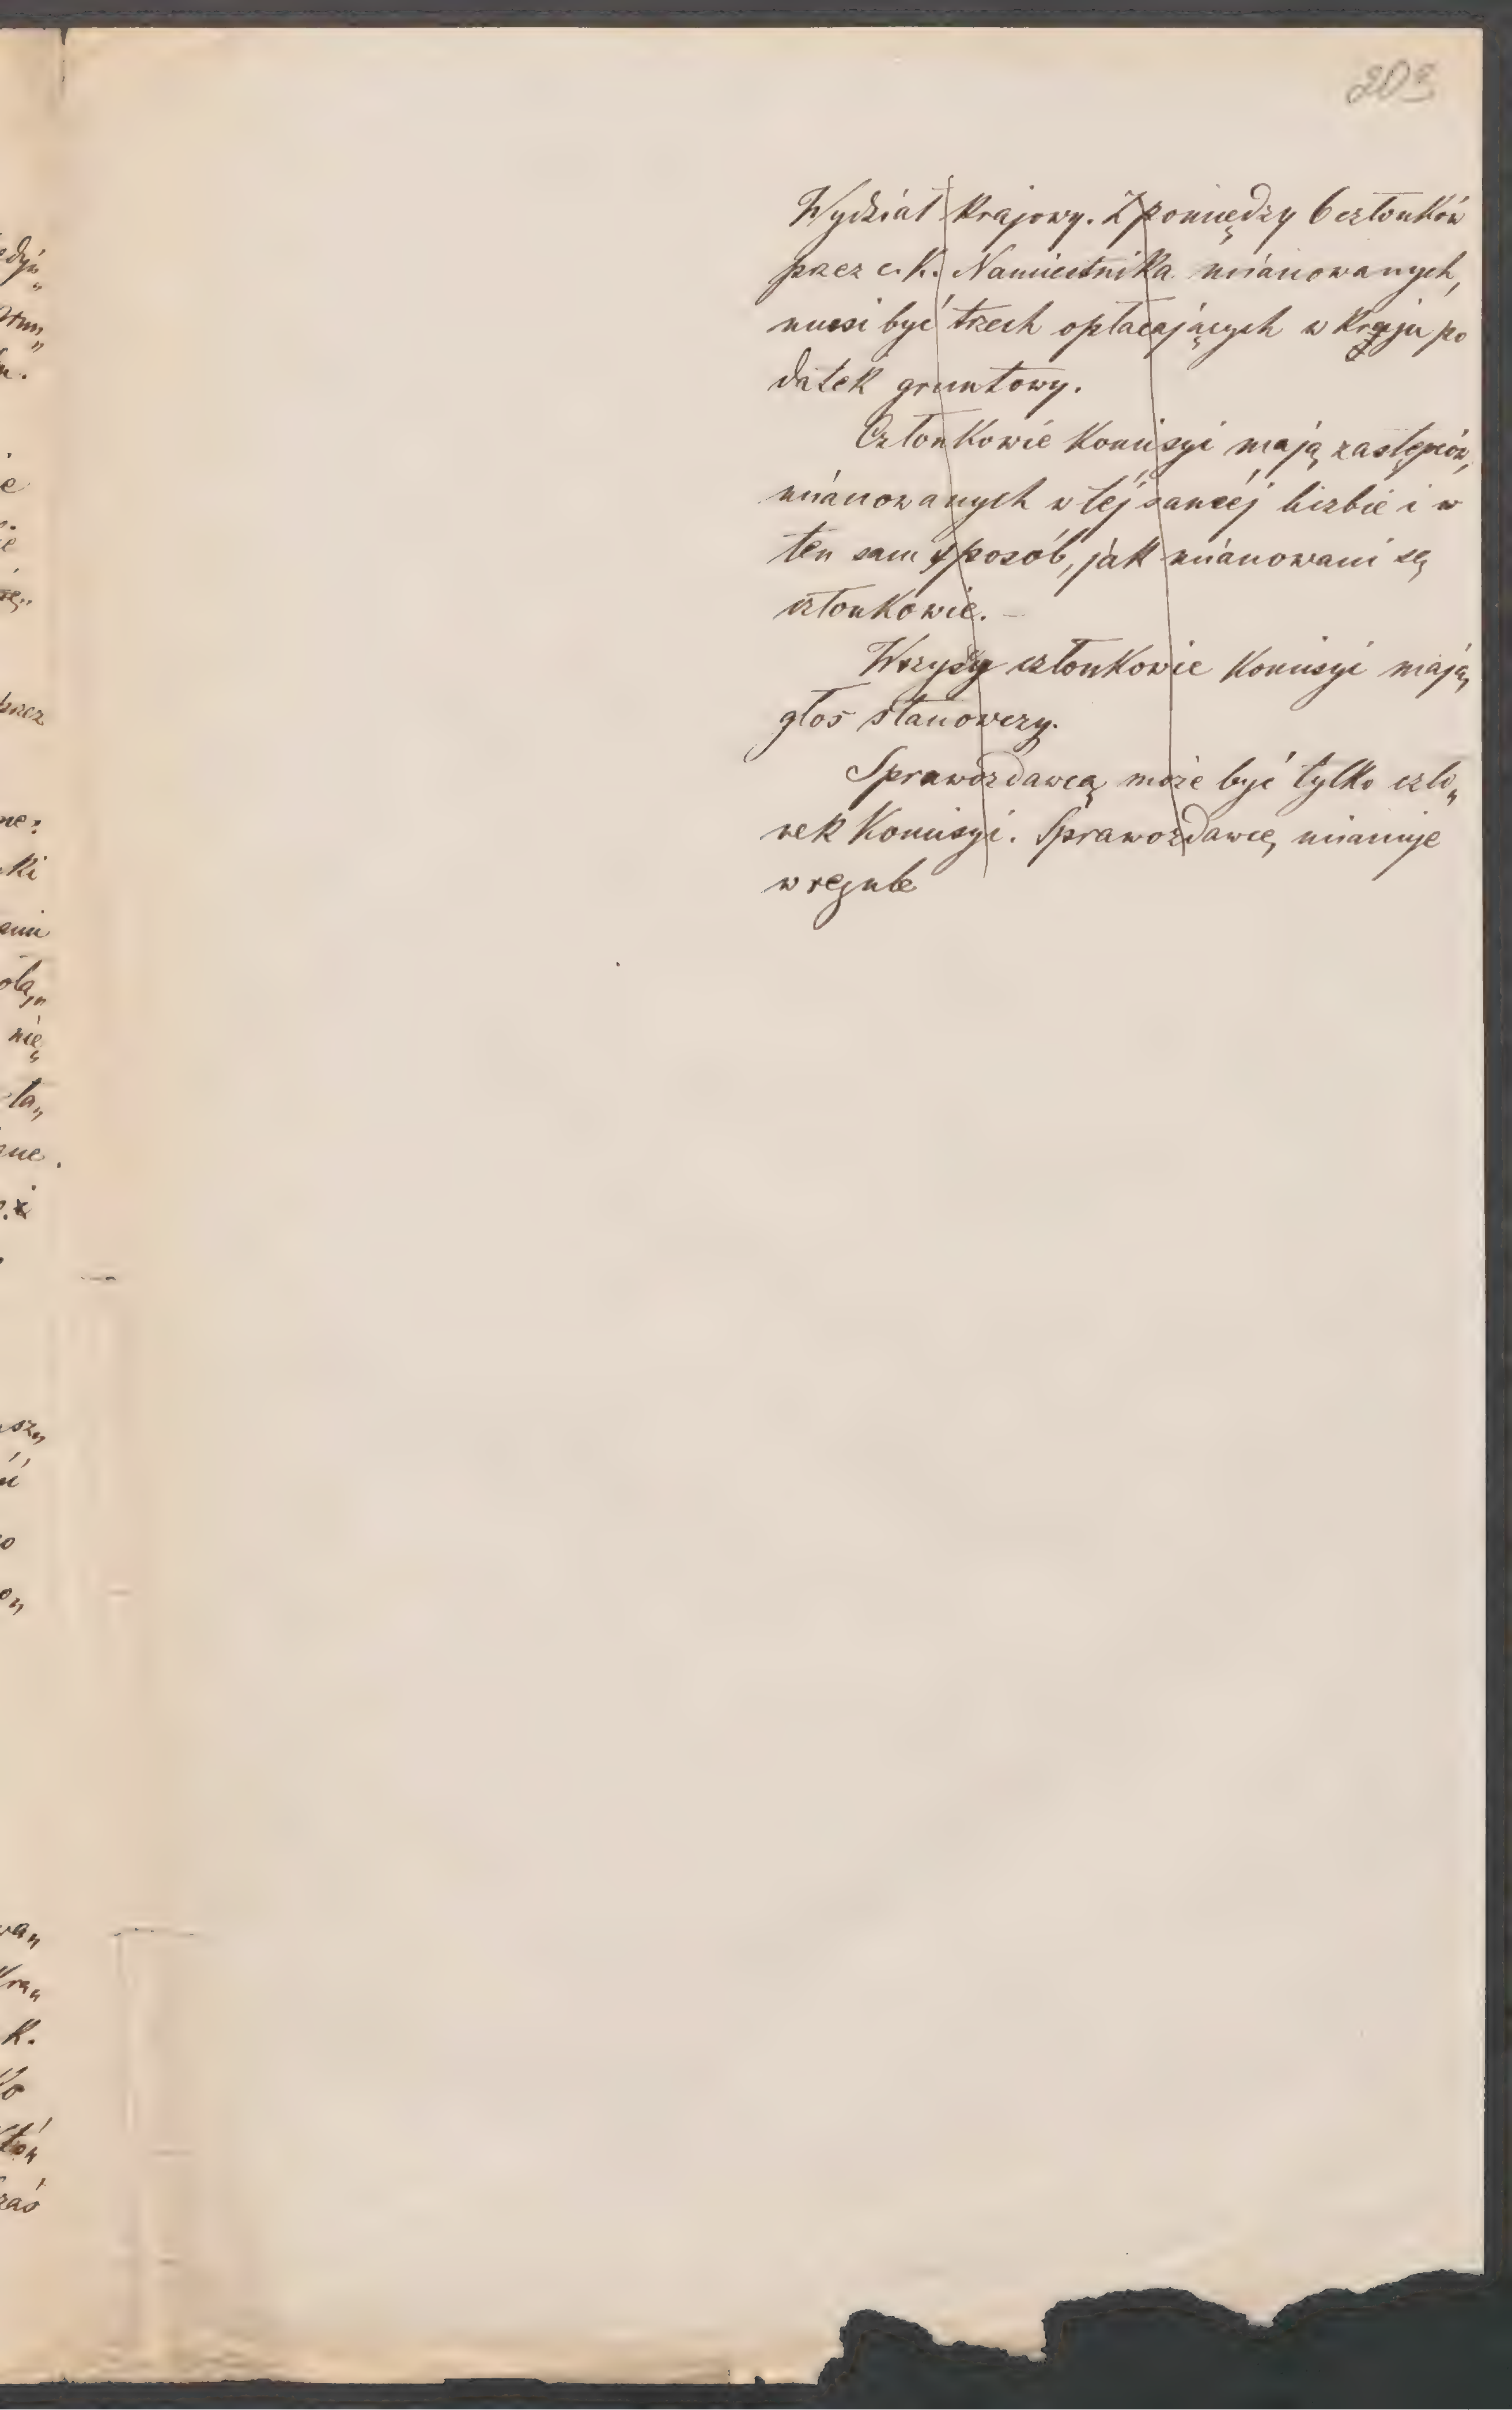 203
Wydział krajowy. Z pomiędzy 6 członków
przez c. k. Namiestnika mianowanych,
musi być trzech opłacających w kraju po
datek gruntowy.
Członkowie Komisyi mają zastępców,
mianowanych w tej saméj liczbie i w
ten sam sposób, jak mianowani są
członkowie. –
Wszyscy członkowie Komisyi mają
głos stanowczy.
Sprawozdawcą może być tylko czło„
nek Komisyi. Sprawozdawcę mianuje
w regule